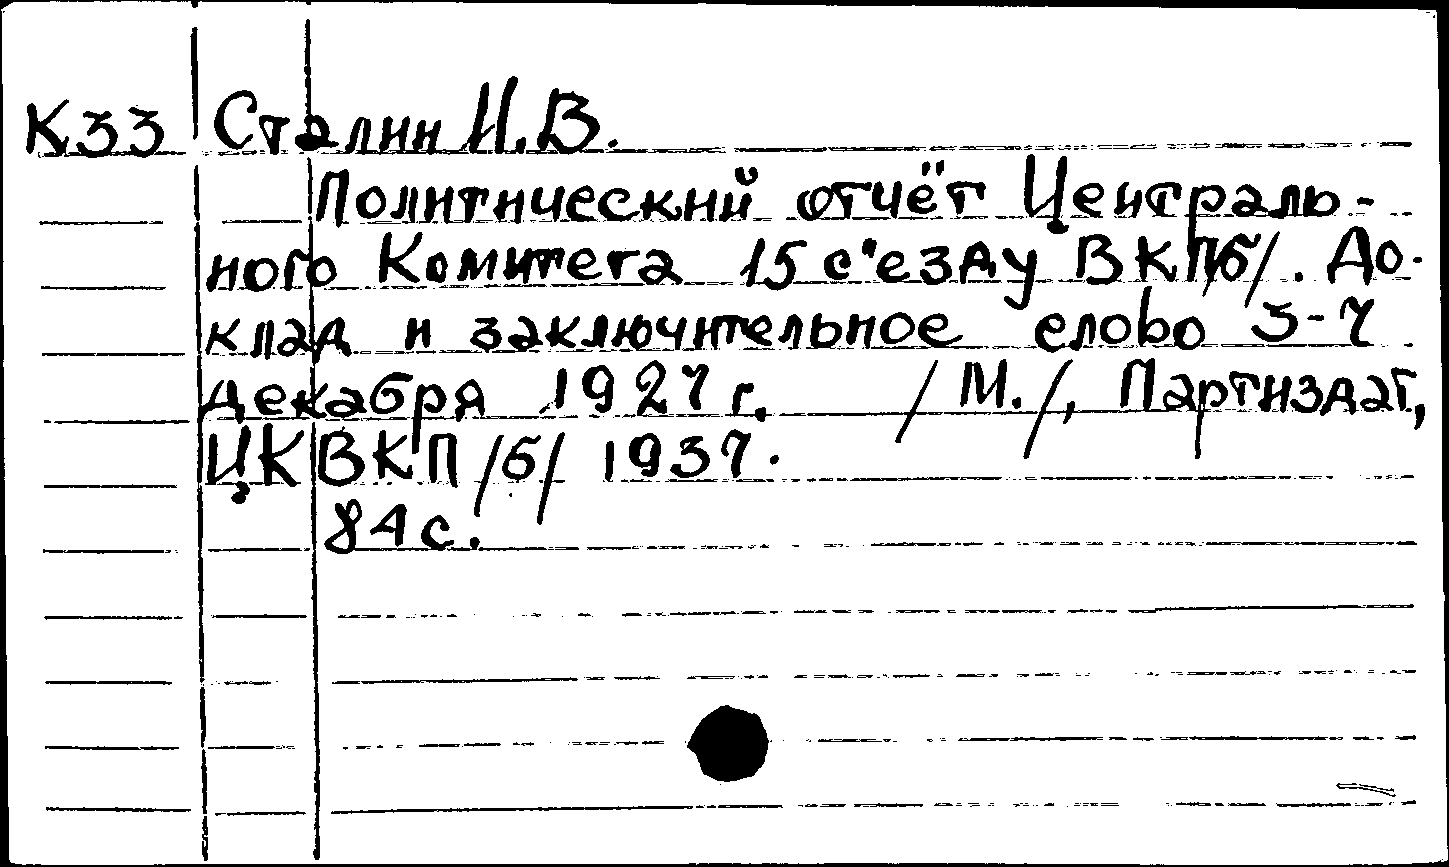 К33 Сталин И.В.
Политический отчёт Централь-
ного Комитета 15 с"езду ВКП/б/. До-
клад и заключительное слово 3-7
декабря 1927 г. /М./, Партиздат,
ЦК ВКП/б/ 1937.
84 с.